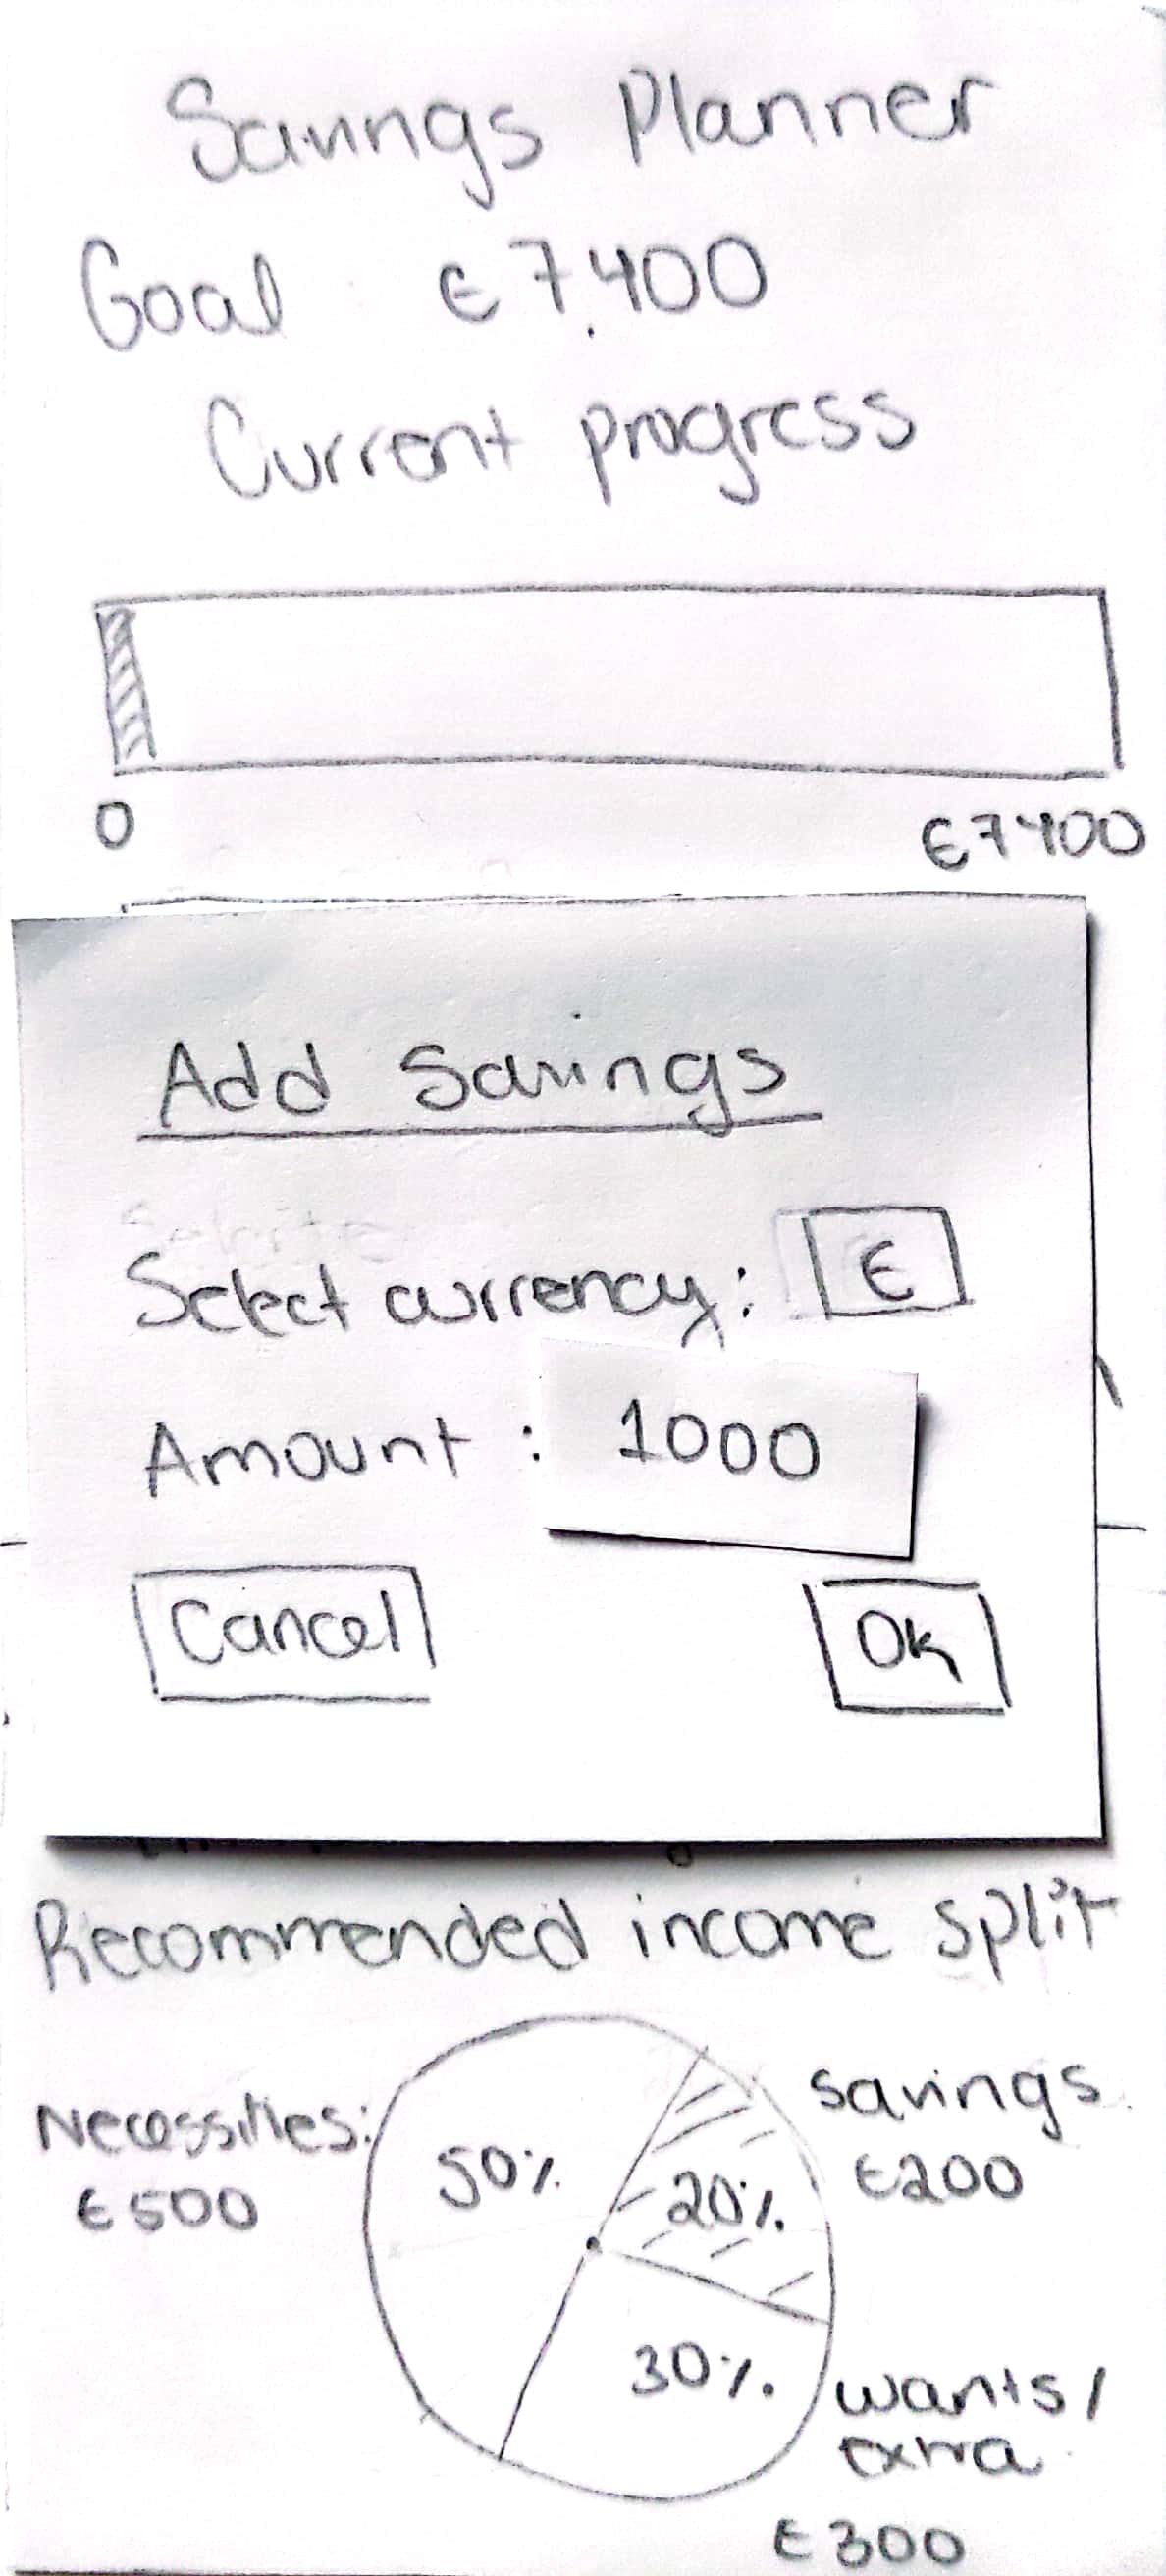 Savings Planner
Goal : € 7.400
Current progress
0
€7400
Add Savings
Select currency: €
Amount : 1000
Cancel
OK
Recommended income split
Necessities:
€500
50%
savings
€200
20%
30%
wants/
extra
€300